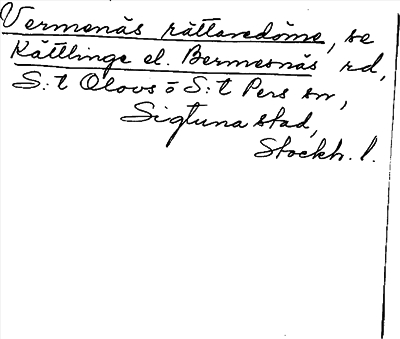 Vermenäs rättaredöme, se
Kättlinge el. Bermesnäs rd,
S:t Olovs o S:t Pers sn,
Sigtuna stad,
Stockh. l.